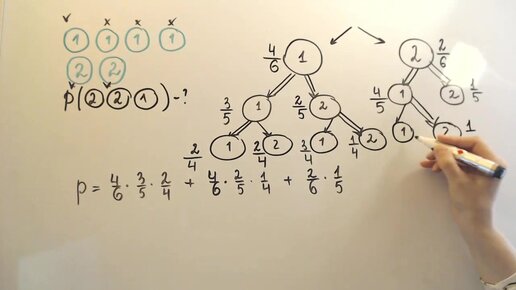 1 1 1 1
2 2
p(2 2 1) - ?
4/6 1 2 2/6
3/5 1 2/5 2 4/5 1 2 1/5
2/4 1 2/4 2 3/4 1 1/4 2 1 2 1
p = 4/6 · 3/5 · 2/4 + 4/6 · 2/5 · 1/4 + 2/6 · 1/5